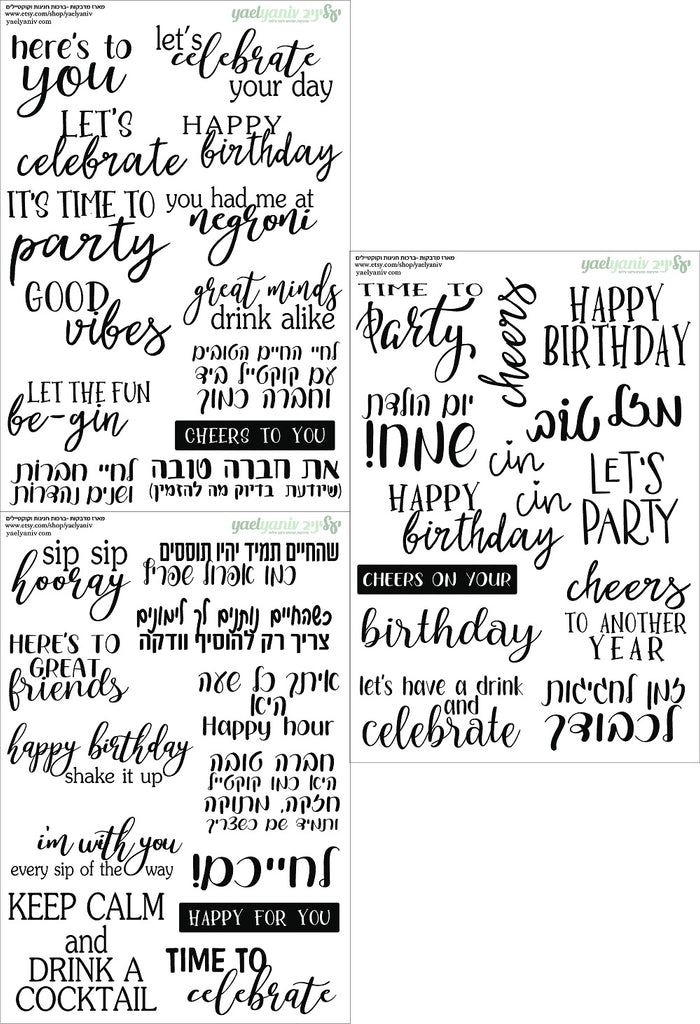 מארז מדבקות -ברכות חגיגות וקוקטיילים
www.etsy.com/shop/yaelyaniv
yaelyaniv com
yaelyaniv יעליניב
here's to
you
let's
celebrate
your day
LET'S
celebrate
HAPPY
birthday
IT'S TIME TO
party
you had me at
negroni
GOOD
vibes
great minds
drink alike
לחיי החיים הטובים
עם קוקטייל ביד
וחברה כמוך
LET THE FUN
be-gin
CHEERS TO YOU
לחיי חברות
ושנים נהדרות
את חברה טובה
(שיודעת בדיוק מה להזמין)
מארז מדבקות -ברכות חגיגות וקוקטיילים
www.etsy.com/shop/yaelyaniv
yaelyaniv com
yaelyaniv יעליניב
sip sip
hooray
שהחיים תמיד יהיו תוססים
כמו אפרול שפריץ
כשהחיים נותנים לך לימונים
צריך רק להוסיף וודקה
HERE'S TO
GREAT
friends
איתך כל שעה
היא
Happy hour
happy birthday
shake it up
חברה טובה
היא כמו קוקטייל
חזקה, מתוקה
ותמיד שם כשצריך
i'm with you
every sip of the way
לחייכם!
KEEP CALM
and
DRINK A
COCKTAIL
HAPPY FOR YOU
TIME TO
celebrate
מארז מדבקות -ברכות חגיגות וקוקטיילים
www.etsy.com/shop/yaelyaniv
yaelyaniv com
yaelyaniv יעליניב
TIME TO
Party
cheers
HAPPY
BIRTHDAY
יום הולדת
שמח!
מזל טוב
cin
cin
LET'S
PARTY
HAPPY
birthday
CHEERS ON YOUR
birthday
cheers
TO ANOTHER
YEAR
let's have a drink
and
celebrate
זמן לחגיגות
לכבודך